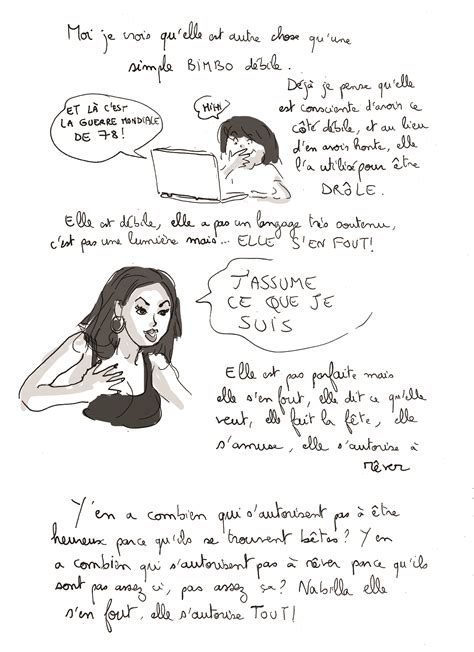 Moi je crois qu'elle est autre chose qu'une
simple BIMBO débile.
Déjà je pense qu'elle
est consciente d'avoir ce
côté débile, et au lieu
d'en avoir honte, elle
l'a utilisé pour être
DRÔLE.
ET LÀ C'EST
LA GUERRE MONDIALE
DE 78!
HiHi
Elle est débile, elle a pas un langage très soutenu,
c'est pas une lumière mais... ELLE S'EN FOUT!
J'ASSUME
CE QUE JE
SUIS
Elle est pas parfaite mais
elle s'en fout, elle dit ce qu'elle
veut, elle fait la fête, elle
s'amuse, elle s'autorise à
rêver
Y'en a combien qui s'autorisent pas à être
heureux parce qu'ils se trouvent bêtes? Y en
a combien qui s'autorisent pas à rêver parce qu'ils
sont pas assez ci, pas assez ça? Nabilla elle
s'en fout, elle s'autorise TOUT!